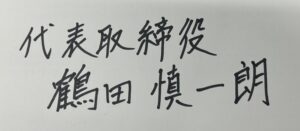 代表取締役
鶴田慎一朗